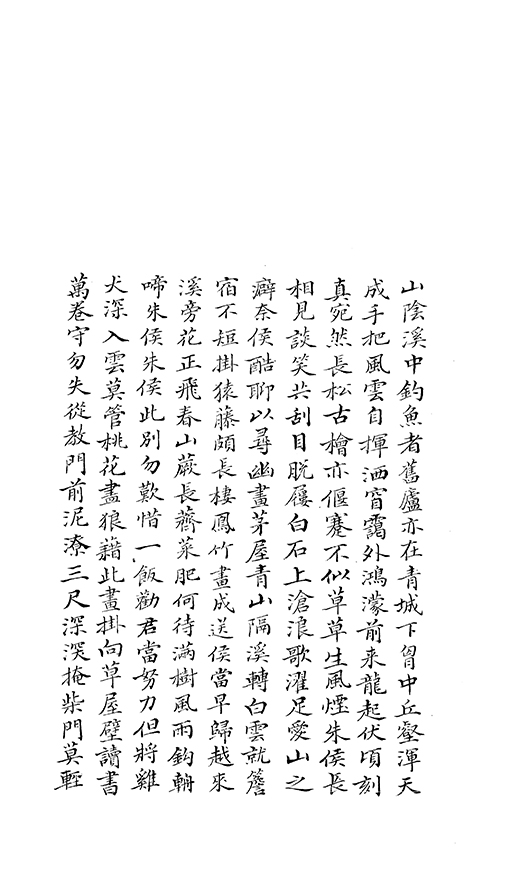 山陰溪中釣魚者舊廬亦在青城下胷中丘壑渾天
成手把風雲自揮洒窅靄外鴻濛前来龍起伏頃刻
真宛然長松古檜亦偃蹇不似草草生風煙朱侯長
相見談笑共刮目脱屨白石上滄浪歌濯足愛山之
癖奈侯酷聊以尋幽畫茅屋青山隔溪轉白雲就簷
宿不短掛猿藤頗長棲鳳竹畫成送侯當早歸越來
溪旁花正飛春山蕨長薺菜肥何待滿樹風雨鈎輈
啼朱侯朱侯此别勿歎惜一飯勸君當努力但將雞
犬深入雲莫管桃花盡狼藉此畫掛向草屋壁讀書
萬卷守勿失從教門前泥潦三尺深深掩柴門莫輕